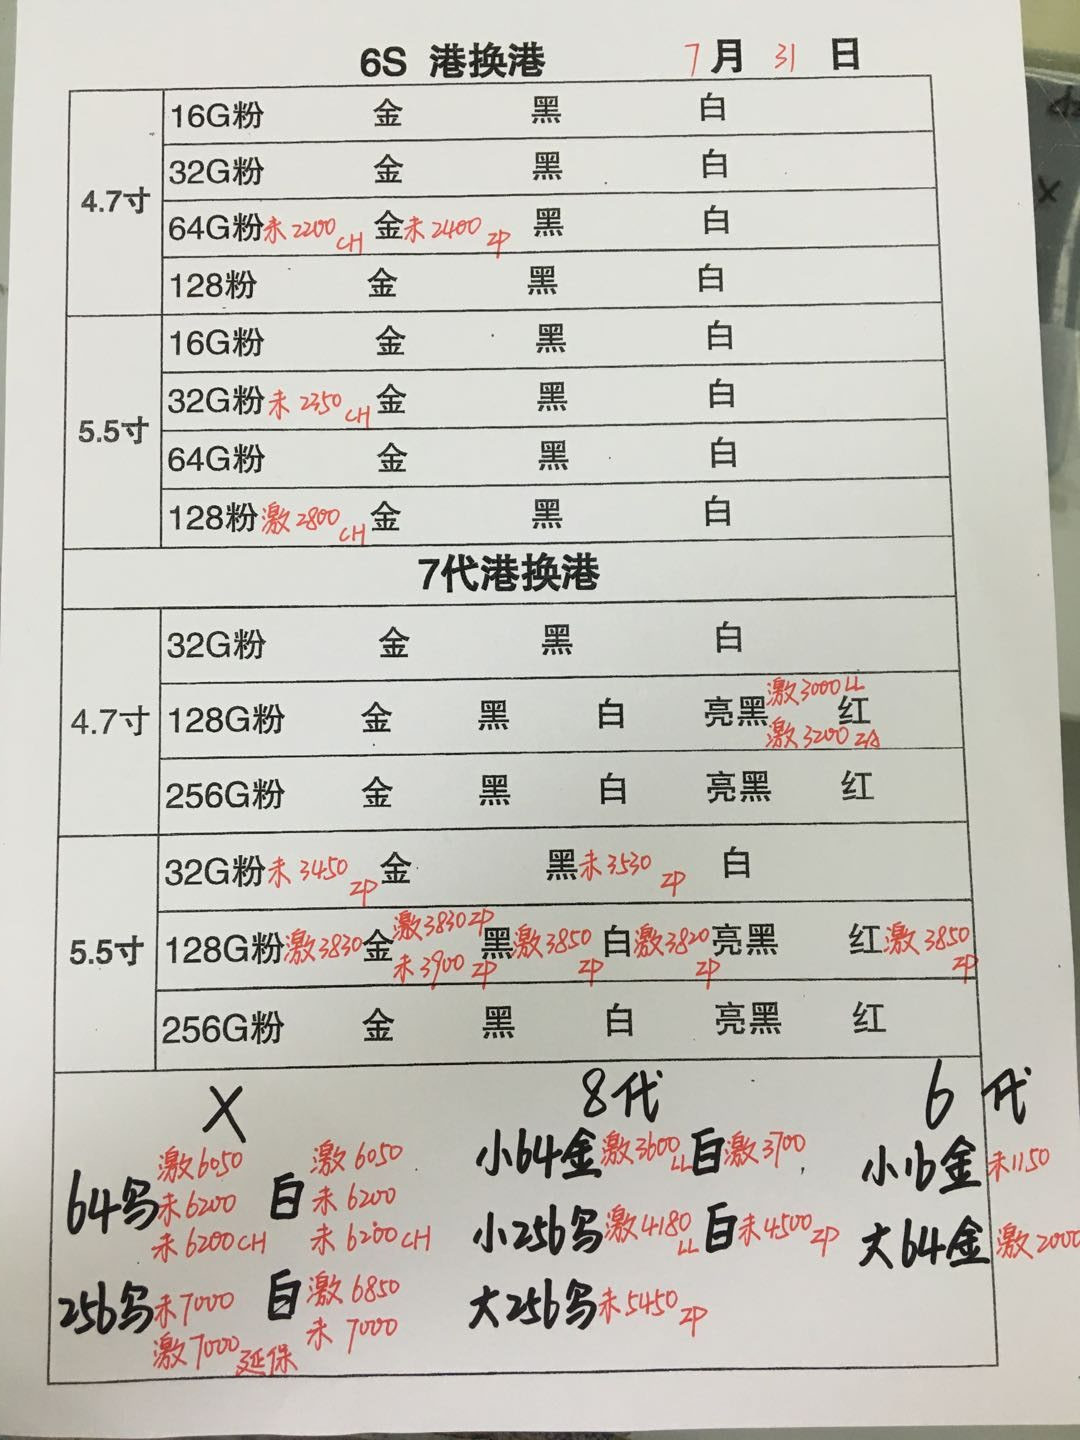 6S 港换港 7月31日
4.7寸
16G粉 金 黑 白
32G粉 金 黑 白
64G粉 未2200 CH 金 未2400 ZP 黑 白
128粉 金 黑 白
5.5寸
16G粉 金 黑 白
32G粉 未2350 CH 金 黑 白
64G粉 金 黑 白
128粉 激2800 CH 金 黑 白
7代港换港
4.7寸
32G粉 金 黑 白
128G粉 金 黑 白 亮黑 激3000 LL 激3200 ZA 红
256G粉 金 黑 白 亮黑 红
5.5寸
32G粉 未3450 ZP 金 黑 未3530 ZP 白
128G粉 激3830 金 激3830 ZP 未3900 ZP 黑 激3850 ZP 白 激3820 ZP 亮黑 红 激3850 ZP
256G粉 金 黑 白 亮黑 红
X
64 激6050 未6200 未6200CH 白 激6050 未6200 未6200CH
256 未7000 激7000 延保 白 激6850 未7000
8代
小64金 激3600 LL 白 激3700
小256 激4180 LL 白 未4500 ZP
大256 未5450 ZP
6代
小16金 未1150
大64金 激2000